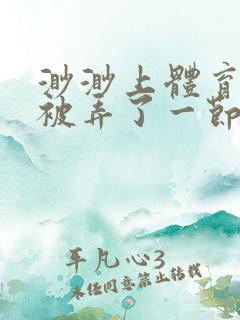 渺渺上體育
被弄了一節
平凡心3
未经同意禁止转载